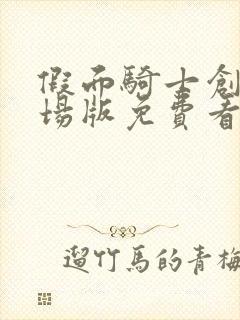 假面騎士創
場版免費看
遛竹馬的青梅